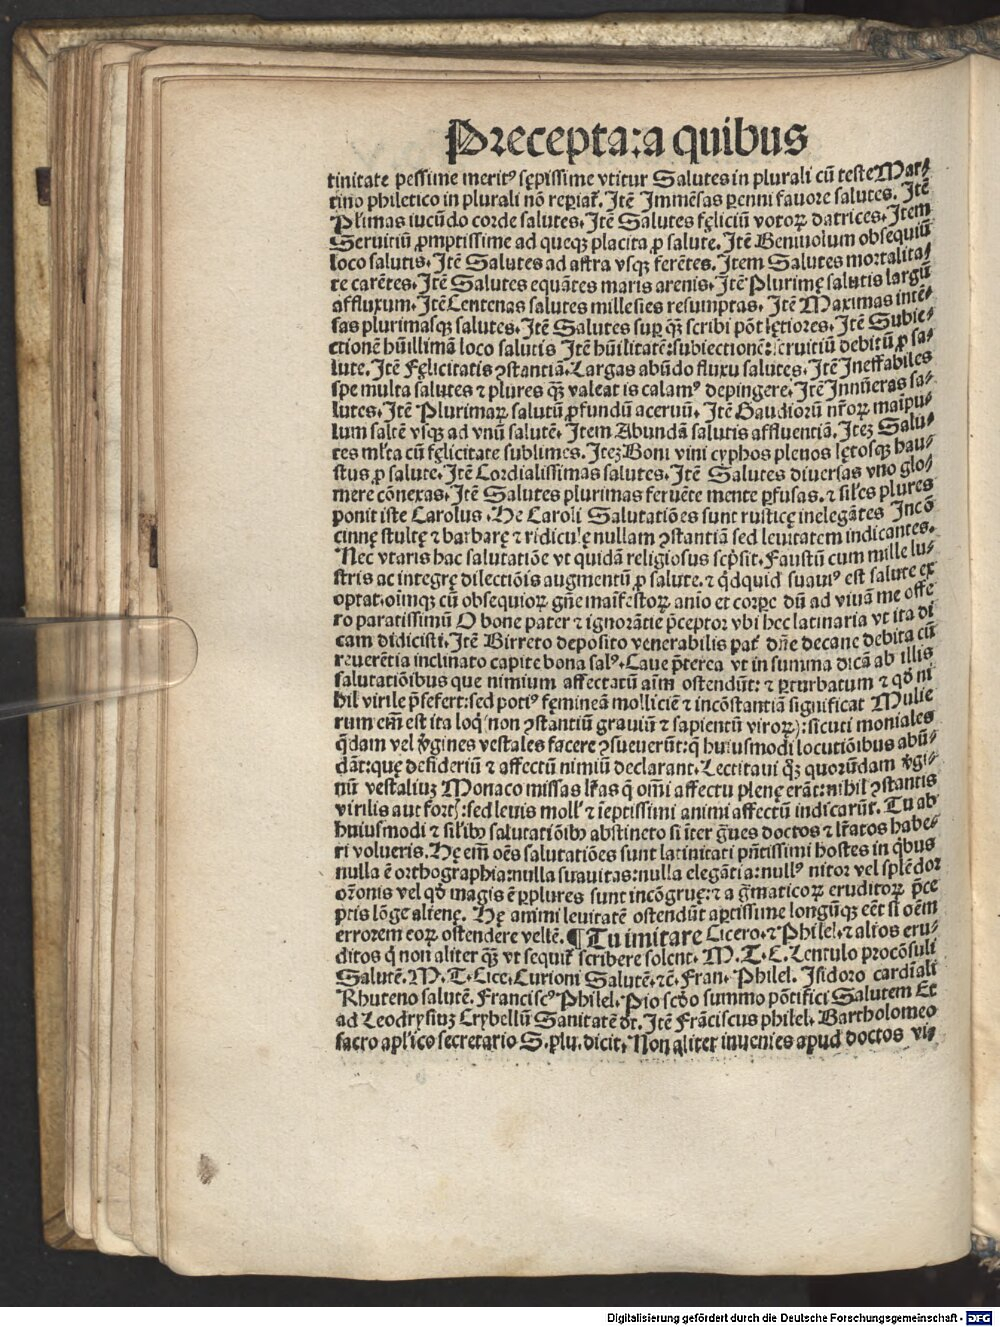 Precepta: a quibus
tinitate pessime meritꝰ sępissime vtitur Salutes in plurali cū teste Mar⸗
tino philetico in plurali nō reꝑiat᷑. Itē Immēsas ꝑenni fauore salutes. Itē
Pl̓imas iucūdo corde salutes. Itē Salutes fęliciū votoꝝ datrices. Item
Seruitiū ꝓmptissime ad queqꝫ placita ꝓ salute. Itē Beniuolum obsequiū
loco salutis. Itē Salutes ad astra vsqꝫ ferētes. Item Salutes mortalita⸗
te carētes. Itē Salutes equātes maris arenis. Itē Plurimę salutis largū
affluxum. Itē Centenas salutes millesies resumptas. Itē Maximas intē⸗
sas plurimasqꝫ salutes. Itē Salutes suꝑ qꝫ̄ scribi pōt lętiores. Itē Subie⸗
ctionē hūillimā loco salutis Itē hūilitatē: subiectionē: seruitiū debitū ꝓ sa⸗
lute. Itē Fęlicitatis ꝯstantiā. Largas abūdo fluxu salutes. Itē Ineffabiles
spe multa salutes ⁊ plures qꝫ̄ valeat is calamꝰ depingere. Itē Innūeras sa⸗
lutes. Itē Plurimaꝝ salutū ꝓfundū aceruū. Itē Gaudiorū nr̄oꝝ maīpu⸗
lum saltē vsqꝫ ad vnū salutē. Item Abundā salutis affluentiā. Iteꝫ Salu⸗
tes ml̓ta cū fęlicitate sublimes. Iteꝫ Boni vini cyphos plenos lętosqꝫ hau⸗
stus ꝓ salute. Itē Cordialissimas salutes. Itē Salutes diuersas vno glo⸗
mere cōnexas. Itē Salutes plurimas feruēte mente ꝑfusas. ⁊ sil̓es plures
ponit iste Carolus. He Caroli Salutatiōes sunt rusticę inelegātes Incō
cinnę stultę ⁊ barbarę ⁊ ridiculę nullam ꝯstantiā sed leuitatem indicantes.
Nec vtaris hac salutatiōe vt quidā religiosus scp̄sit. Faustū cum mille lu⸗
stris ac integrę dilectiōis augmentū ꝓ salute. ⁊ qͥdquid suauiꝰ est salute ex
optat. oīmqꝫ cū obsequioꝝ gn̄e maīfestoꝝ anio et corꝑe dū ad viuā me offe
ro paratissimū O bone pater ⁊ ignorātie p̄ceptor vbi hec latinaria vt ita di
cam didicisti. Itē Birreto deposito venerabilis pat᷑ dn̄e decane debita cū
reuerētia inclinato capite bona salꝰ. Caue p̄terea vt in summa dicā ab illis
salutatiōibus que nimium affectatū aīm ostendūt: ⁊ ꝑturbatum ⁊ qd̓ ni
hil virile p̄sefert: sed potiꝰ fęmineā molliciē ⁊ incōstantiā significat Mulie
rum em̄ est ita loqͥ (non ꝯstantiū grauiū ⁊ sapientū viroꝝ): sicuti moniales
q̄dam vel v̓gines vestales facere ꝯsueuerūt: q̄ huiusmodi locutiōibus abū⸗
dāt: quę desideriū ⁊ affectū nimiū declarant. Lectitaui qͥꝫ quorūdam v̓gi⸗
nū vestaliuꝫ Monaco missas lr̄as q̄ om̄i affectu plenę erāt: nihil ꝯstantis
virilis aut fort᷑: sed leuis moll̓ ⁊ īeptissimi animi affectū indicarūt. Tu ab
huiusmodi ⁊ sil̓ibꝫ salutatiōibꝫ abstineto si īter g̓ues doctos ⁊ lr̄atos habe⸗
ri volueris. Hę em̄ oēs salutatiōes sunt latinitati pn̄tissimi hostes in qͥbus
nulla ē orthographia: nulla suauitas: nulla elegātia: nullꝰ nitor vel splēdor
or̄onis vel qd̓ magis ē ꝑplures sunt incōgruę: ⁊ a gͣmaticoꝝ eruditoꝝ p̄ce
ptis lōge alienę. Hę animi leuitatē ostendūt aꝑtissime longūqꝫ eēt si oēm
errorem eoꝝ ostendere vellē. ¶ Tu imitare Cicero. ⁊ Philel. ⁊ alios eru⸗
ditos qͥ non aliter qꝫ̄ vt sequit᷑ scribere solent. M. T. C. Lentulo procōsuli
Salutē. M. T. Cice. Curioni Salutē. ⁊c̄. Fran. Philel. Isidoro cardīali
Rhuteno salutē. Franciscꝰ Philel. Pio scd̓o summo pōtifici Salutem Et
ad Leodrysiuꝫ Crybellū Sanitatē dt. Itē Frāciscus philel. Bartholomeo
sacro apl̓ico secretario S. plu. dicit. Non aliter inuenies apud doctos vi⸗
Digitalisierung gefördert durch die Deutsche Forschungsgemeinschaft - DFG